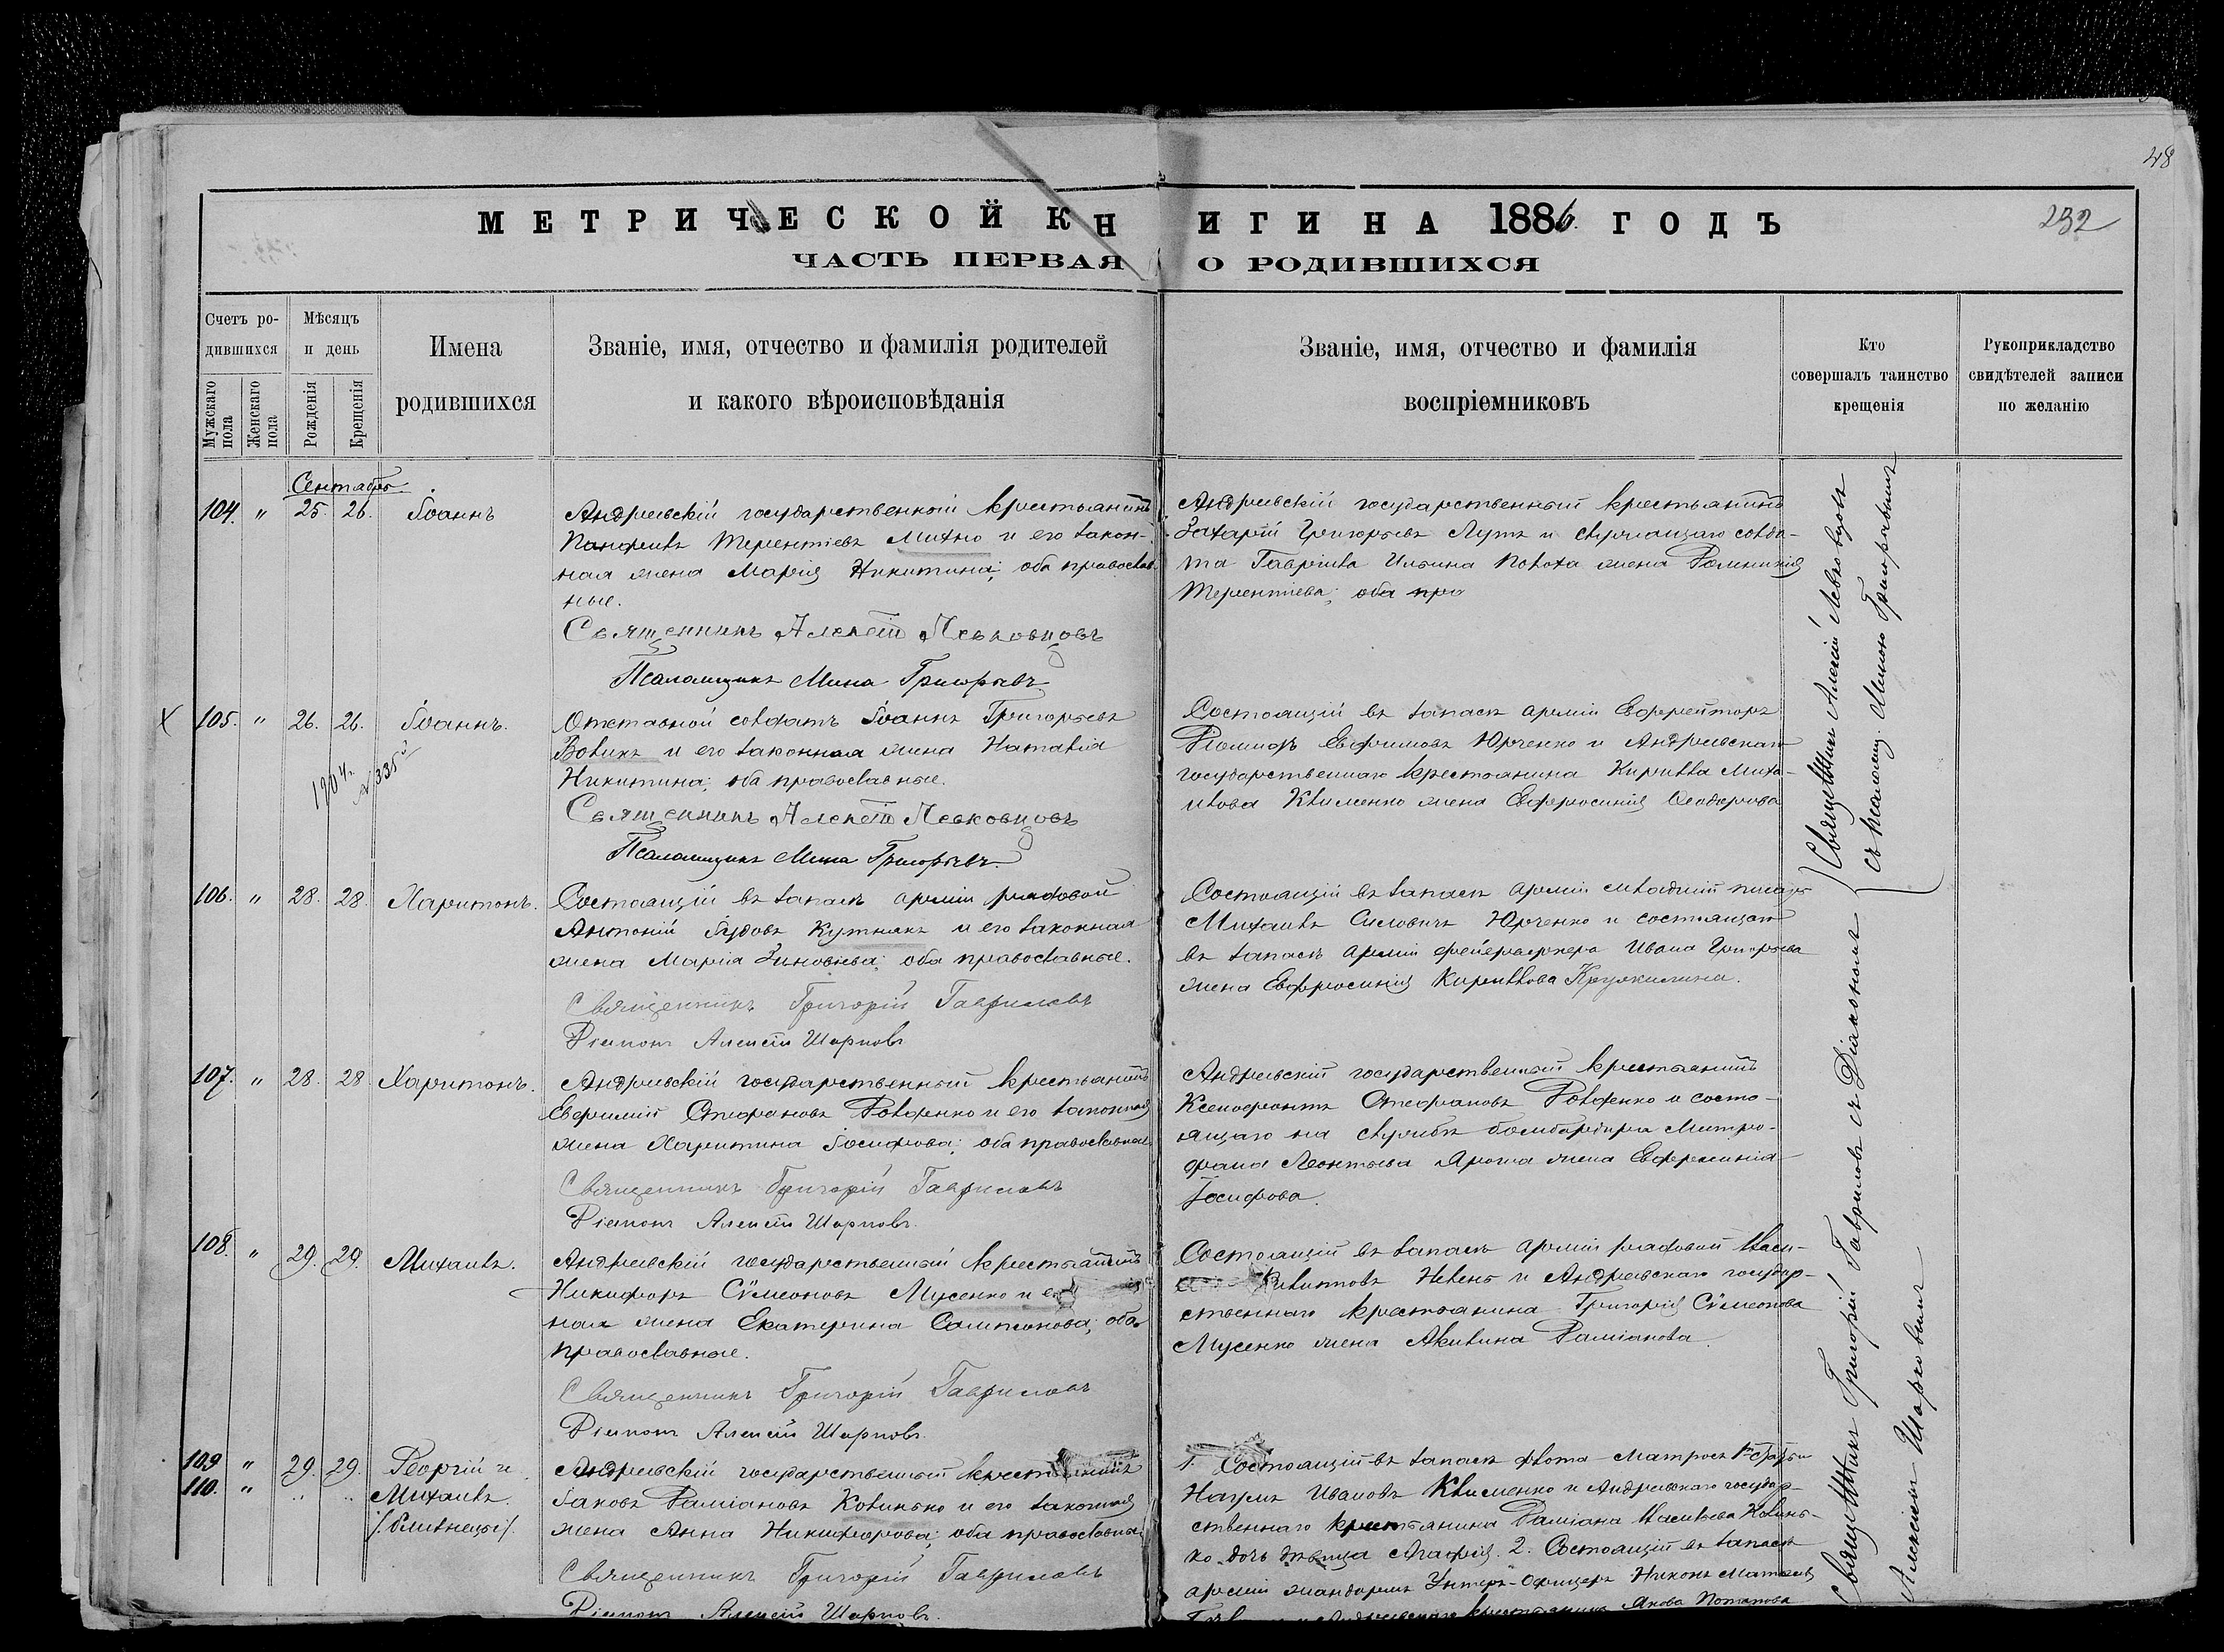 48
МЕТРИЧЕСКОЙ КНИГИ НА 1886 ГОДЪ
232
ЧАСТЬ ПЕРВАЯ О РОДИВШИХСЯ
Счетъ родившихся
Мужскаго пола
Женскаго пола
Мѣсяцъ и день
Рожденія
Крещенія
Имена
родившихся
Званіе, имя, отчество и фамилія родителей
и какого вѣроисповѣданія
Званіе, имя, отчество и фамилія
воспріемниковъ
Кто
совершалъ таинство
крещенія
Рукоприкладство
свидѣтелей записи
по желанію
Сентабрь
104. " 25. 26. Іоаннъ
Андреевскій государственный крестьянинъ
Панфилъ Терентіевъ Михно и его закон-
ная жена Марія Никитина; оба православ-
ные.
Священникъ Алексій Левковцовъ
Псаломщикъ Мина Григорьевъ
Андреевскій государственный крестьянинъ
Захарій Григорьевъ Лутъ и служащаго солда-
та Гавріила Ильина жена
Терентіева; оба пра
105. " 26. 26. Іоаннъ.
1904 г. № 335
Отставной солдатъ Іоаннъ Григорьевъ
Вовкъ и его законная жена Наталія
Никитина; оба православные.
Священникъ Алексій Левковцовъ
Псаломщикъ Мина Григорьевъ
Состоящій въ запасѣ арміи Ефрейторъ
Діомидъ Евфимовъ Юрченко и Андреевскаго
государственнаго крестьянина Кирилла Миха-
илова Клименко жена Евфросинія Ѳеодорова
106. " 28. 28. Харитонъ.
Состоящій въ запасѣ арміи рядовой
Антоній Іудовъ Кутнякъ и его законная
жена Марія Зиновіева; оба православные.
Священникъ Григорій Гавриловъ
Діаконъ Алексій Шарковъ
Состоящій въ запасѣ арміи младшій писарь
Михаилъ Силовичъ Юрченко и состоящаго
въ запасѣ арміи фейерверкера Ивана Григорьева
жена Евфросинія Кириллова Кружилина.
107. " 28. 28 Харитонъ.
Андреевскій государственный крестьянинъ
Евфимій Стефановъ Довженко и его законная
жена Харитина Іосифова; оба православные
Священникъ Григорій Гавриловъ
Діаконъ Алексій Шарковъ.
Андреевскій государственный крестьянинъ
Ксенофонтъ Стефановъ Довженко и состо-
ящаго на службѣ бомбардира Митро-
фана Леонтьева Яроша жена Евфросинія
Іосифова.
108. " 29. 29. Михаилъ.
Андреевскій государственный крестьянинъ
Никифоръ Сѵмеоновъ Мусенко и его
ная жена Екатерина Сампсонова; оба
православные.
Священникъ Григорій Гавриловъ
Діаконъ Алексій Шарковъ.
Состоящій въ запасѣ арміи рядовой Васи-
и Андреевскаго государ-
ственнаго крестьянина Григорія Сѵмеонова
Мусенко жена Акилина Даміанова
109 " 29. 29. Георгій и
110. " " " Михаилъ.
/близнецы/.
Андреевскій государственный крестьянинъ
Іаковъ Даміановъ Ковинько и его законная
жена Анна Никифорова; оба православные
Священникъ Григорій Гавриловъ
Діаконъ Алексій Шарковъ.
1. Состоящій въ запасѣ флота Матросъ 1й статьи
Наумъ Ивановъ Клименко и Андреевскаго государ-
ственнаго крестьянина Даміана Васильева Ковинь-
ко дочь дѣвица Агафія. 2. Состоящій въ запасѣ
арміи жандармъ Унтеръ-офицеръ Никонъ
и Андреевскаго крестьянина Якова Потапова
Священникъ Алексій Левковцовъ
съ псаломщ. Миною Григорьевымъ
Священникъ Григорій Гавриловъ съ Діакономъ
Алексіемъ Шарковымъ